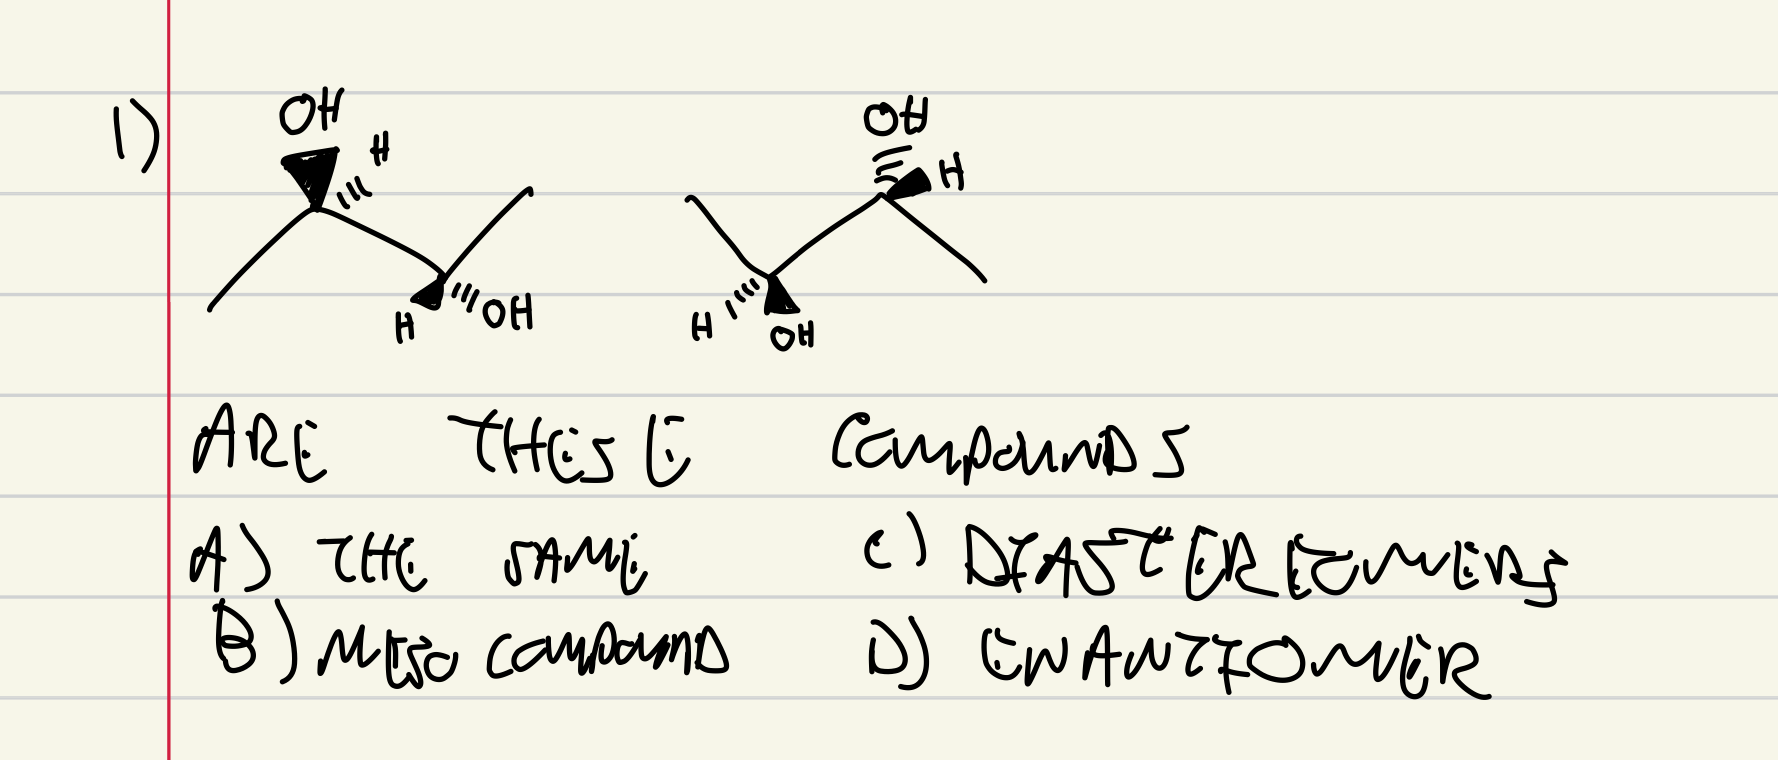 1)
OH H OH H
H OH H OH
ARE THESE COMPOUNDS
A) THE SAME C) DIASTEREOMERS
B) MESO COMPOUND D) ENANTIOMER